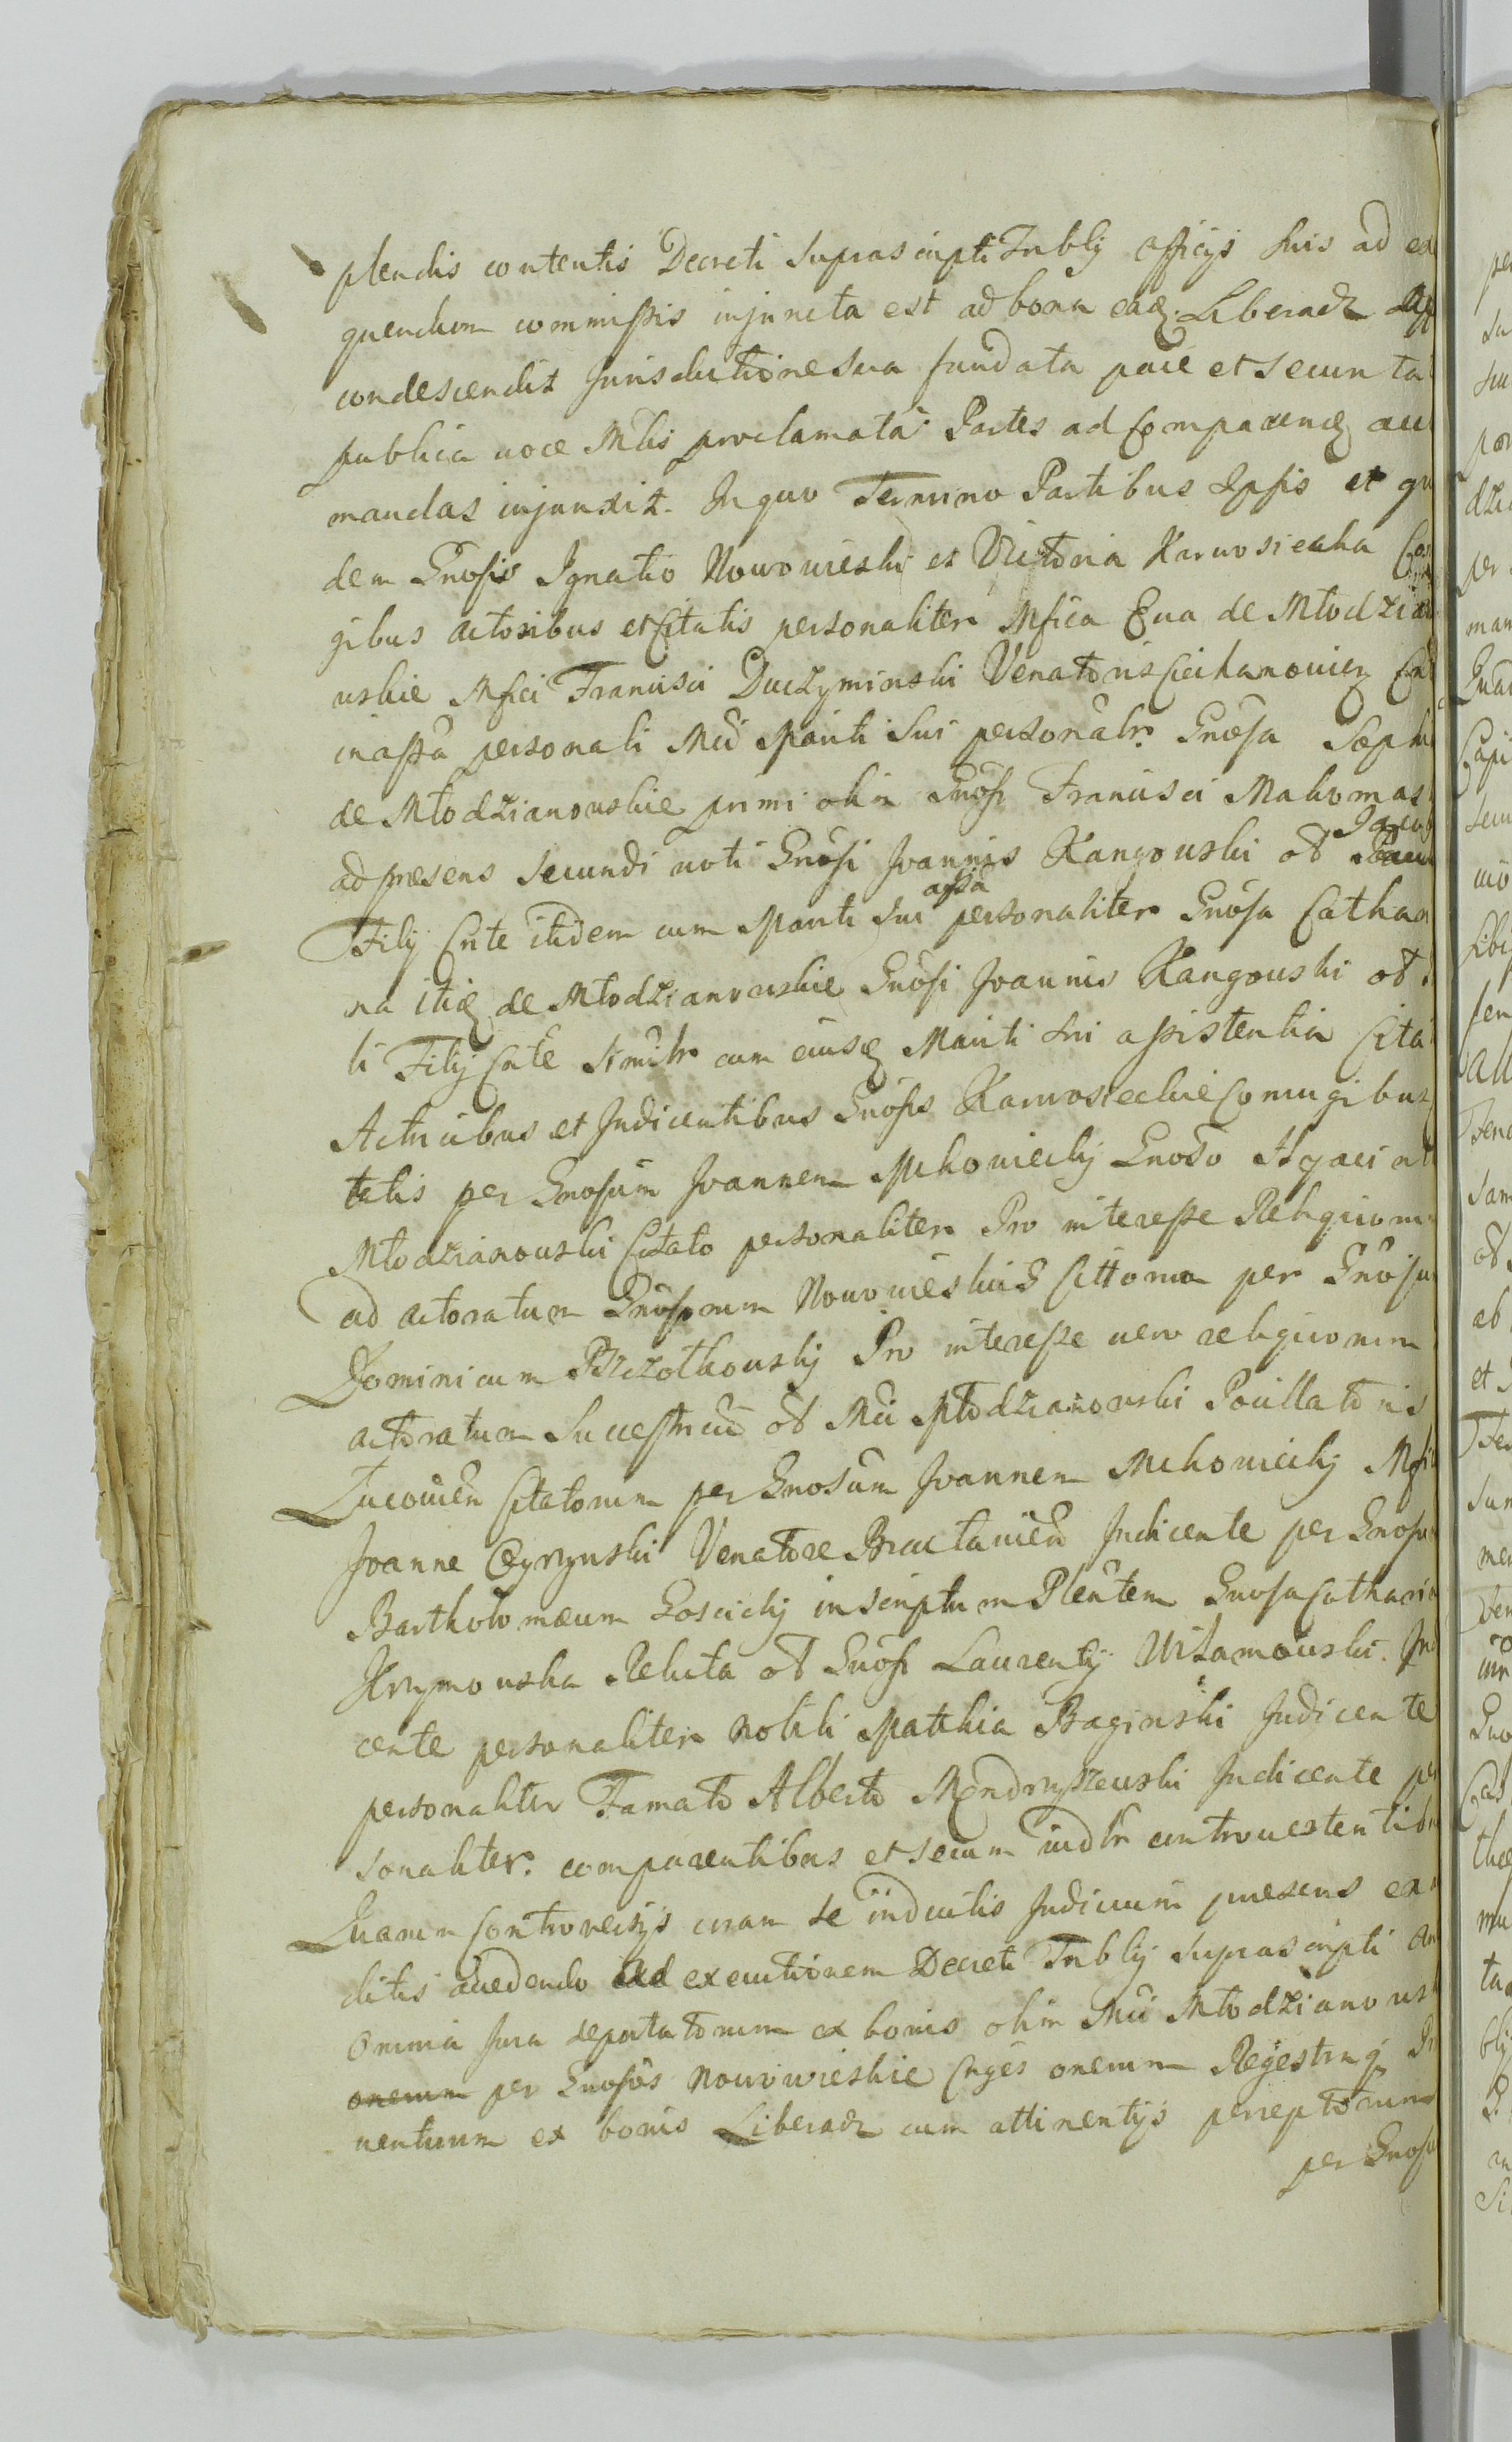 plendis contentis Decreti suprascripti Triblij officijs suis ad ex
quendum commissis injuncta est ad bona eadq Liberadz
condescendit Jurisdictione sua fundata pace et securita
publica voce Mlis proclamata Partes ad comparendq
mandas injunxit. In quo Termino Partibus Ipsis et qu
dem Gnosis Ignatio Nowowieski et Victoria Karwosiecka
gibus actoribus et Citatis personaliter Mfica Eva de Młodzia
uskie Mfici Francisci Duczyminski Venatoris Ciechanovien
in assa personali Mci Mariti sui personalr Gnosa Soph
de Młodzianowskie primi olim Gnosi Francisci Makomas
Jacob
ad præsens secundi voti Gnosi Joannis Kangowski ol
assa
Filij Cnte itidem cum Mariti sui personaliter Gnosa Catha
na itiq de Młodzianowskie Gnosi Joannis Kangowski ol
li Filij Cnte similr cum eiusq Mariti sui assistentia Cita
Actricibus et Indicentibus Gnosis Karwosieckie Conjugibus
tatis per Gnosum Joannem Mchowiecky Gnoso Hyacint
Młodzianowski Citato personaliter Pro interesse Religiorum
ad actoratum Gnosorum Nowowieskie Cittorum per Gnosu
Dominicum Przezotkowsky Pro interesse vero religiorum
actoratum Successorum ol Mci Młodzianowski Pocillatoris
Lucovien Citatorum per Gnosum Joannem Mchowiecky Mfi
Joanne Venatore Braclavien Indicente per Gnosu
Bartholomæum Goscicky inscriptum Plentem Gnosa Cathari
Krzymowska Relicta ol Gnosi Laurentij Wizamowski. In
cente personaliter Nobili Matthia Baginski Indicente
personaliter Famato Alberto Mondryszewski Indicente pe
sonaliter. comparentibus et secum indlr controvertentibu
Quarum Controversijs coram se inductis Judicium præsens ex
ditis accedendo ad executionem Decreti Triblij suprascripti
omnia Jura reportatorum ex bonis olim Mci Młodzianows
onerum per Gnosos Nowowieskie Cnges onerum Regestrq Pr
ventuum ex bonis Liberadz cum attinentijs perceptorum
per Gnosu